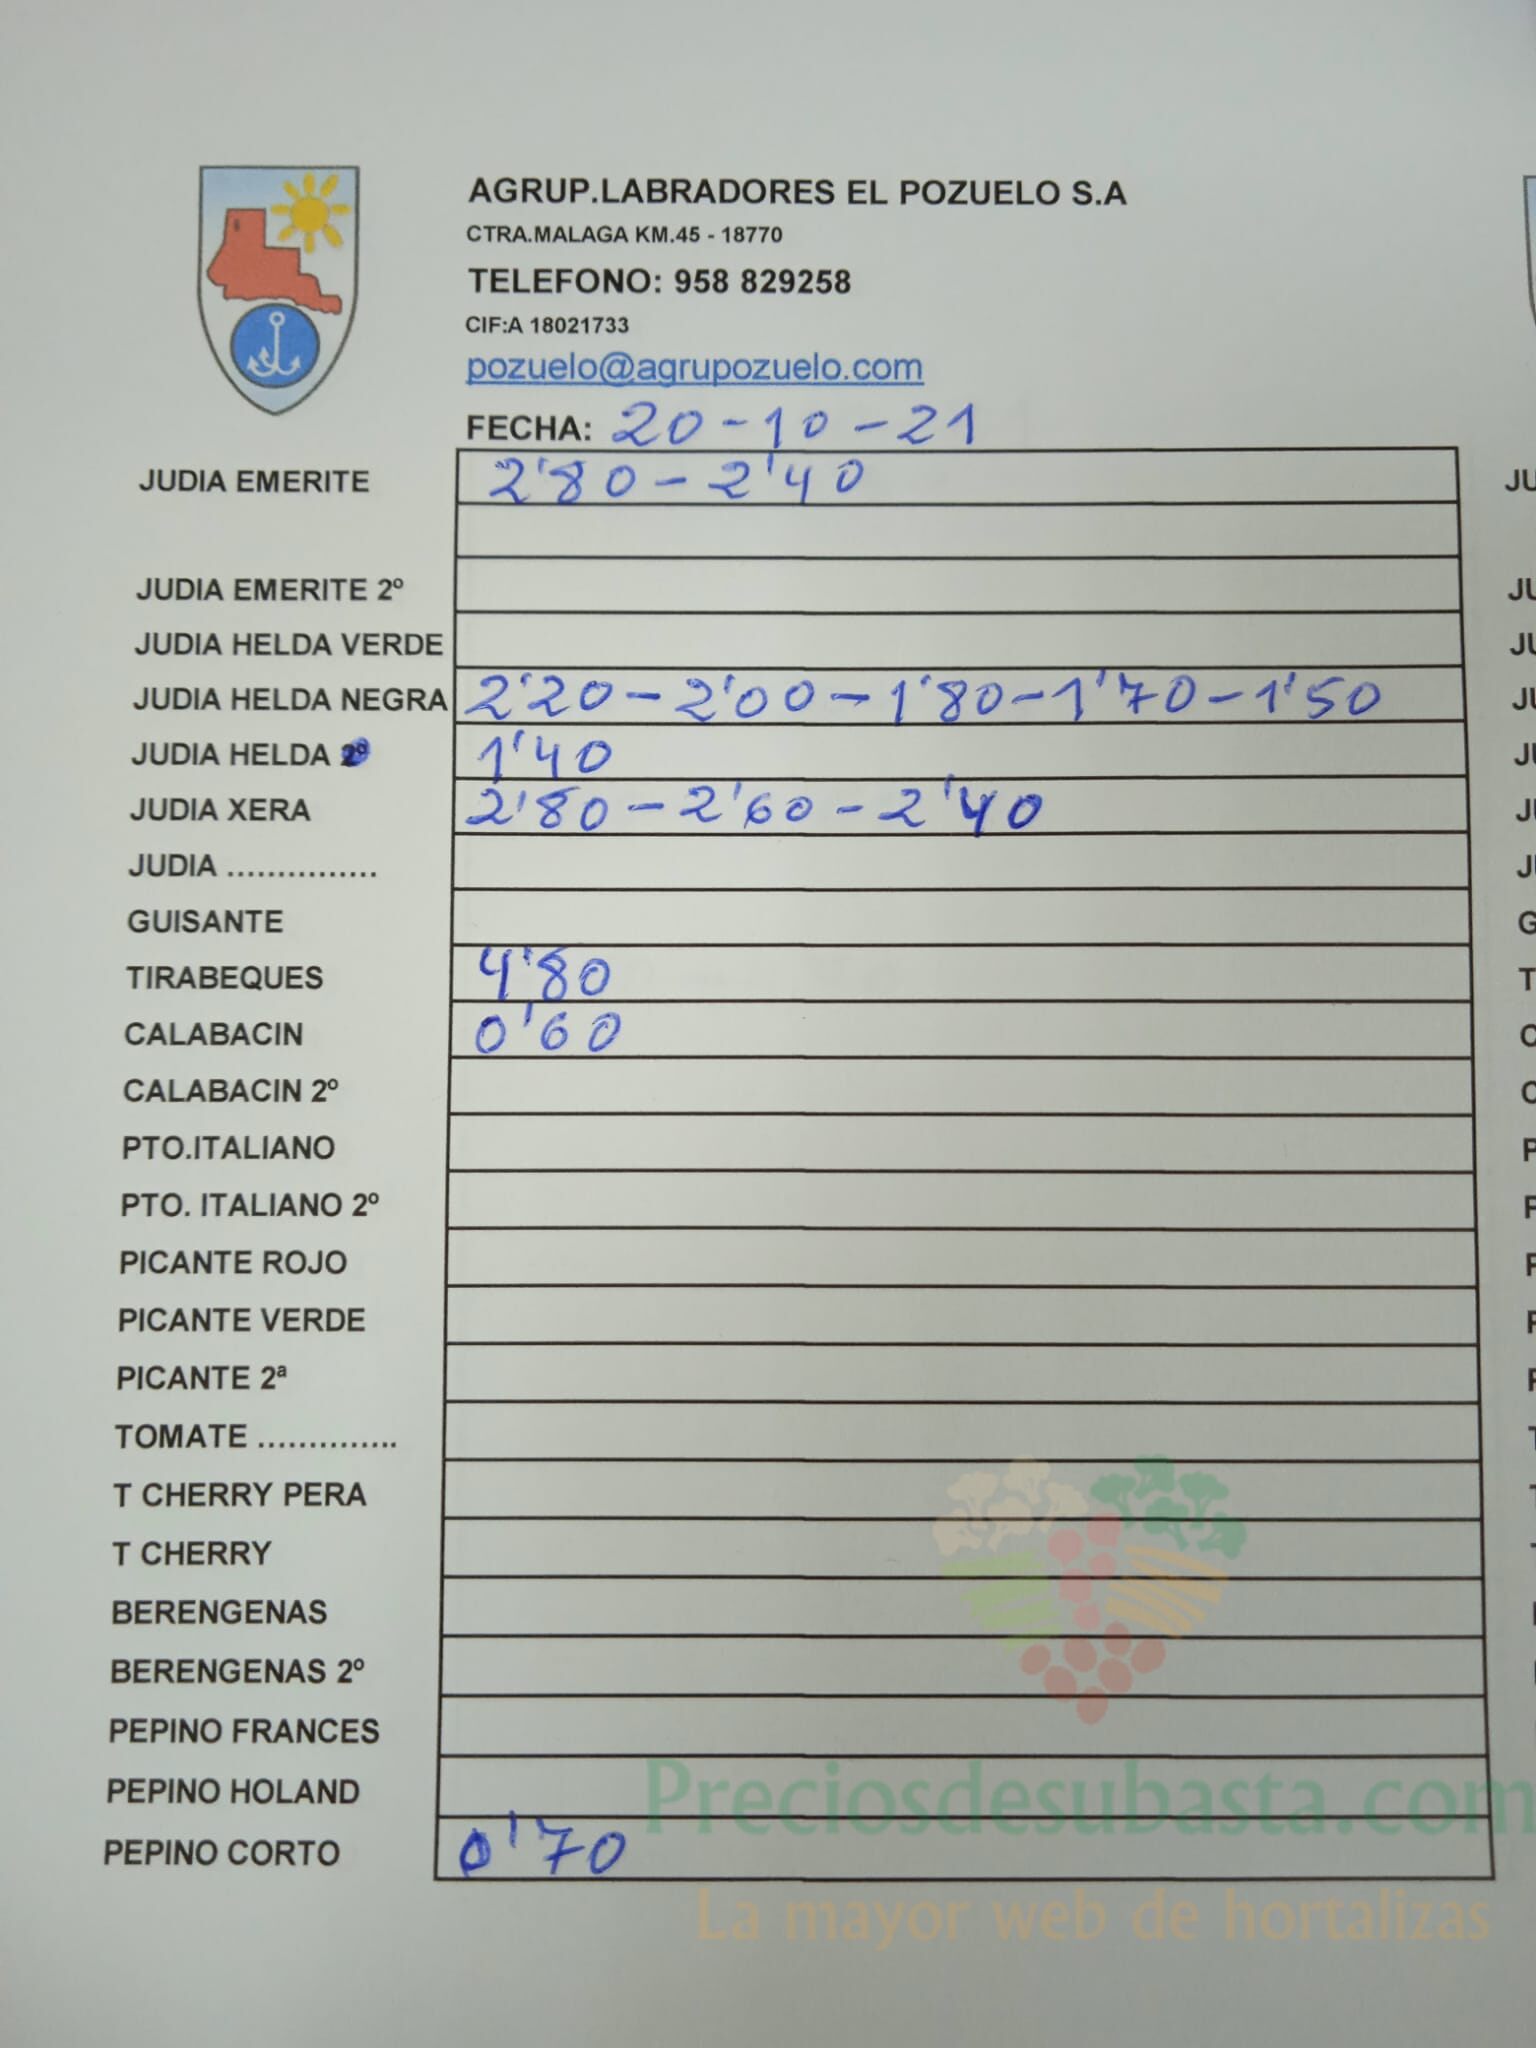 AGRUP.LABRADORES EL POZUELO S.A
CTRA.MALAGA KM.45 - 18770
TELEFONO: 958 829258
CIF:A 18021733
pozuelo@agrupozuelo.com
FECHA: 20-10-21
JUDIA EMERITE 2'80-2'40
JUDIA EMERITE 2º
JUDIA HELDA VERDE
JUDIA HELDA NEGRA 2'20-2'00-1'80-1'70-1'50
JUDIA HELDA 2º 1'40
JUDIA XERA 2'80-2'60-2'40
JUDIA ...............
GUISANTE
TIRABEQUES 4'80
CALABACIN 0'60
CALABACIN 2º
PTO.ITALIANO
PTO. ITALIANO 2º
PICANTE ROJO
PICANTE VERDE
PICANTE 2ª
TOMATE ..............
T CHERRY PERA
T CHERRY
BERENGENAS
BERENGENAS 2º
PEPINO FRANCES
PEPINO HOLAND
PEPINO CORTO 0'70
Preciosdesubasta.com
La mayor web de hortalizas